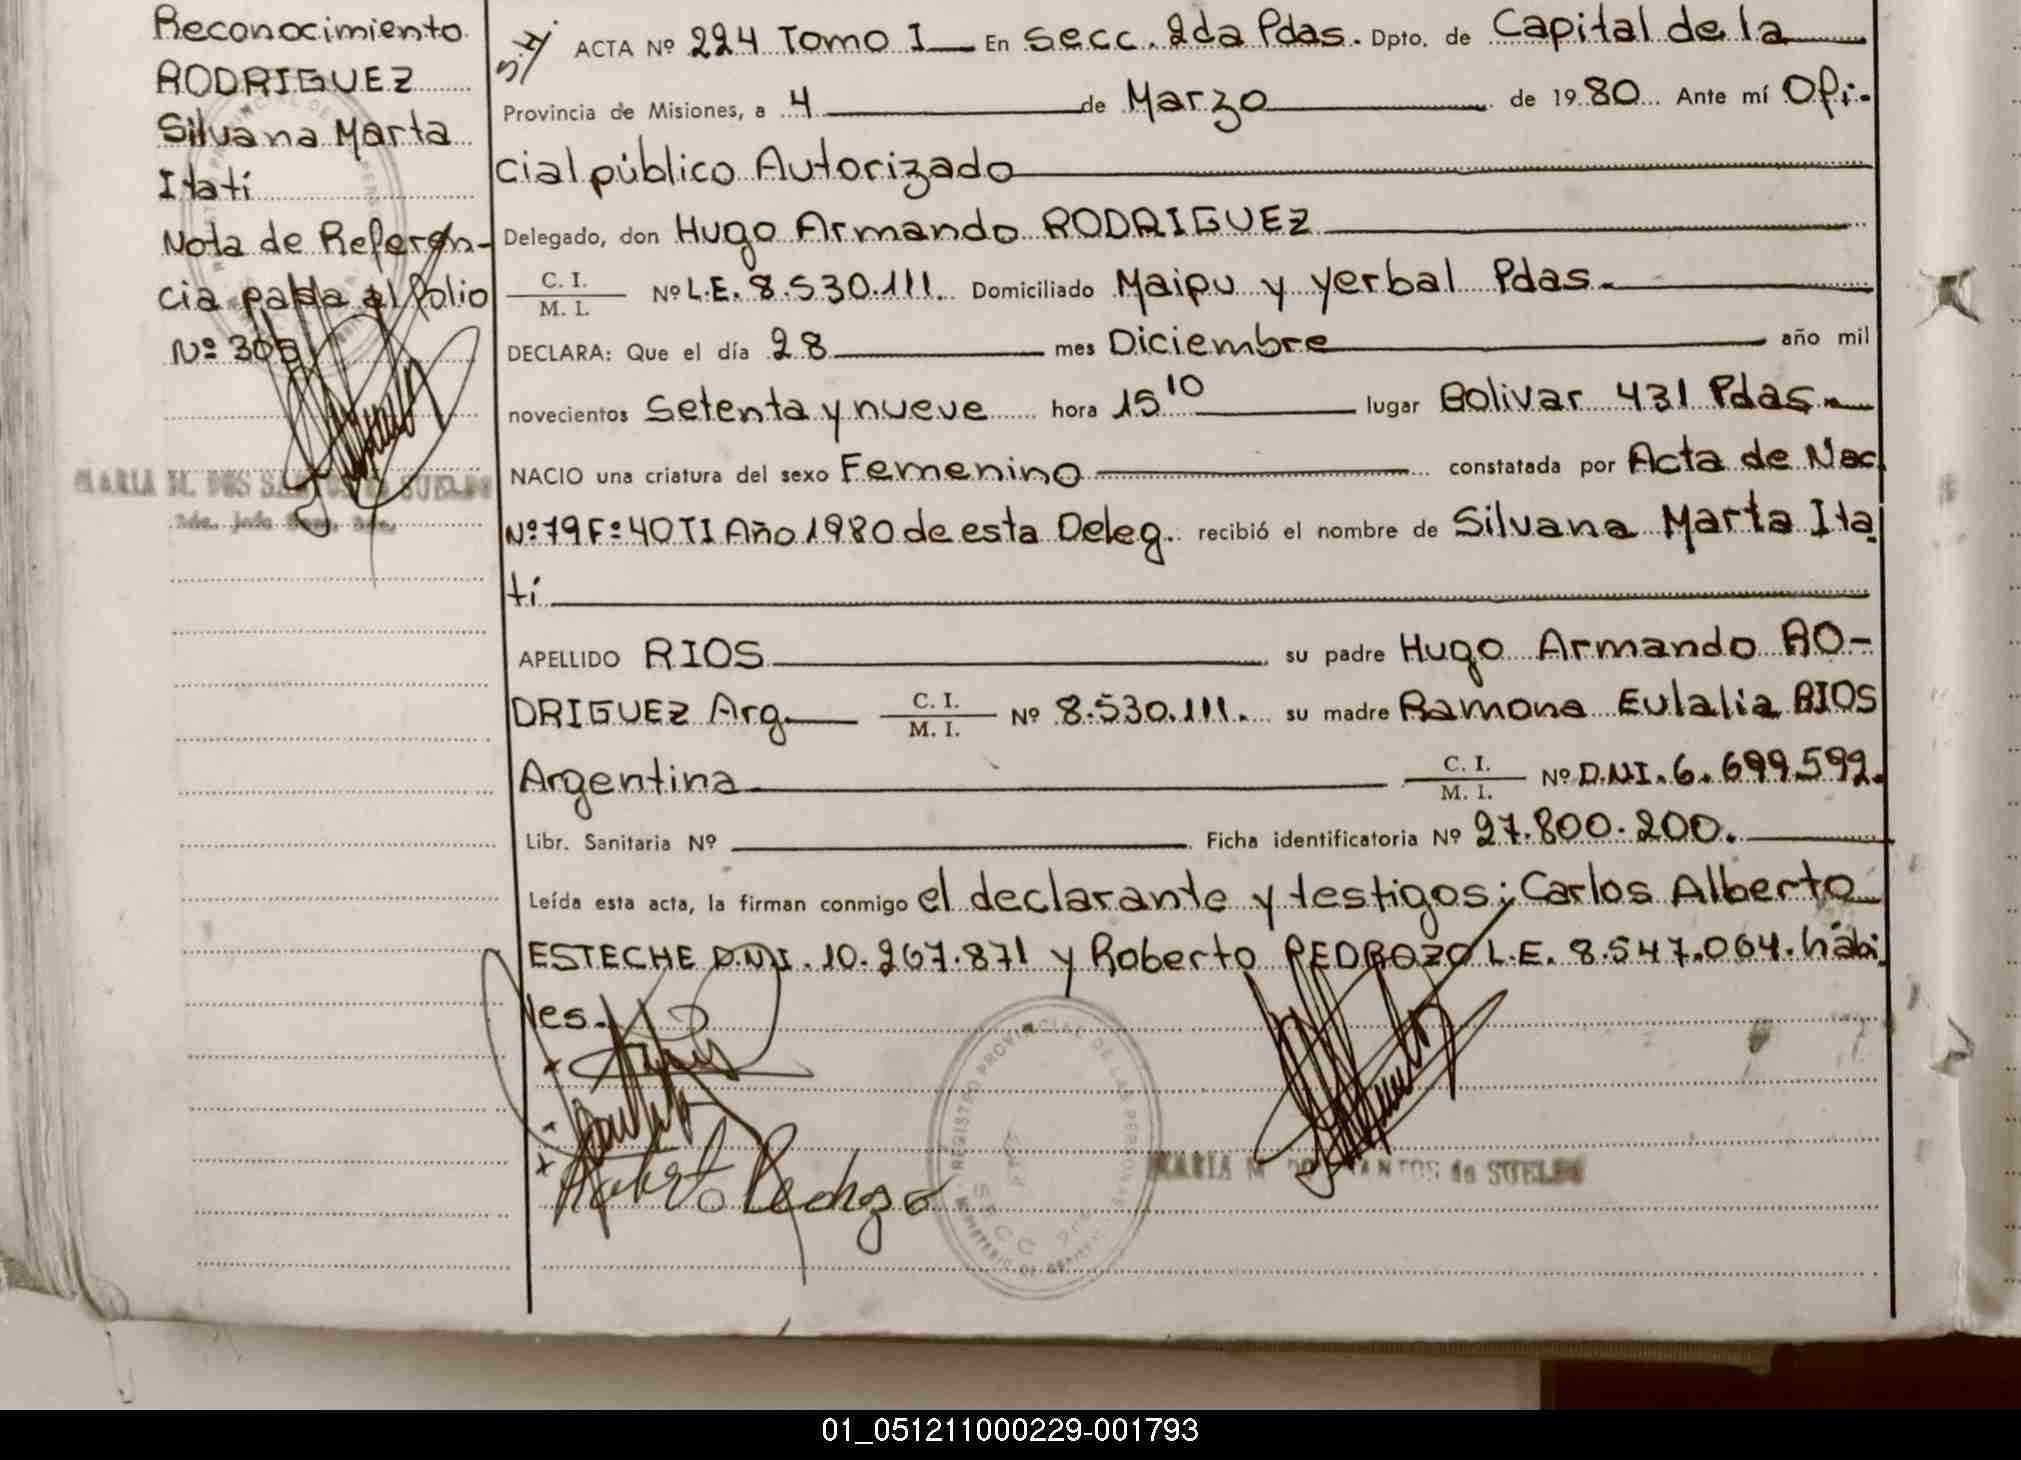 Reconocimiento
RODRIGUEZ
Silvana Marta
Itatí
Nota de Referen-
cia pasda al Folio
Nº 305
MARIA M. DOS SANTOS de SUELDO
ACTA Nº 224 Tomo I En Secc. 2da Pdas. Dpto. de Capital de la
Provincia de Misiones, a 4 de Marzo de 1980 Ante mí Ofi-
cial público Autorizado
Delegado, don Hugo Armando RODRIGUEZ
C. I.
M. I.
Nº L.E. 8.530.111. Domiciliado Maipu y Yerbal Pdas.
DECLARA: Que el día 28 mes Diciembre año mil
novecientos Setenta y nueve hora 15 10 lugar Bolivar 431 Pdas.
NACIO una criatura del sexo Femenino constatada por Acta de Nac
Nº 79 Fº 40 TI Año 1980 de esta Deleg. recibió el nombre de Silvana Marta Ita
tí
APELLIDO RIOS su padre Hugo Armando RO-
DRIGUEZ Arg. C. I. M. I. Nº 8.530.111. su madre Ramona Eulalia RIOS
Argentina C. I. M. I. Nº D.N.I. 6.699.592.
Libr. Sanitaria Nº Ficha identificatoria Nº 27.800.200.
Leída esta acta, la firman conmigo el declarante y testigos; Carlos Alberto
ESTECHE D.N.I. 10.267.871 y Roberto PEDROZO L.E. 8.547.064. hábi
les.
Roberto Pedrozo
REGISTRO PROVINCIAL DE LAS PERSONAS
SECC 2da
MARIA M. DOS SANTOS de SUELDO
01_051211000229-001793